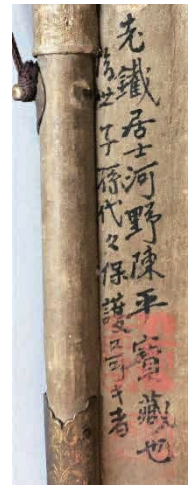 老鐵居士河野陳平寳藏也
後世子孫代々保護又可キ者